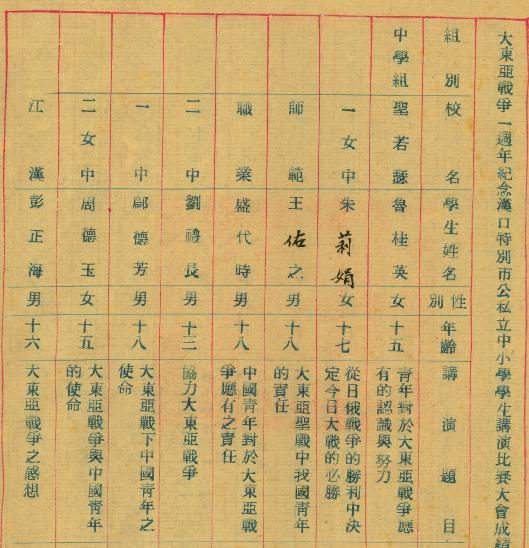 大東亞戰爭一週年紀念漢口特別市公私立中小學學生講演比賽大會成績
組別 校名 學生姓名 性別 年齡 講演題目
中學組 聖若瑟 魯桂英 女 十五 青年對於大東亞戰爭應有的認識與努力
一女中 朱莉娟 女 十七 從日俄戰爭的勝利中決定今日大戰的必勝
師範 王佑之 男 十八 大東亞聖戰中我國青年的責任
職業 盛代時 男 十八 中國青年對於大東亞戰爭應有之責任
二中 劉禮長 男 十三 協力大東亞戰爭
一中 鄺德芳 男 十八 大東亞戰下中國青年之使命
二女中 周德玉 女 十五 大東亞戰爭與中國青年的使命
江漢 彭正海 男 十六 大東亞戰爭之感想